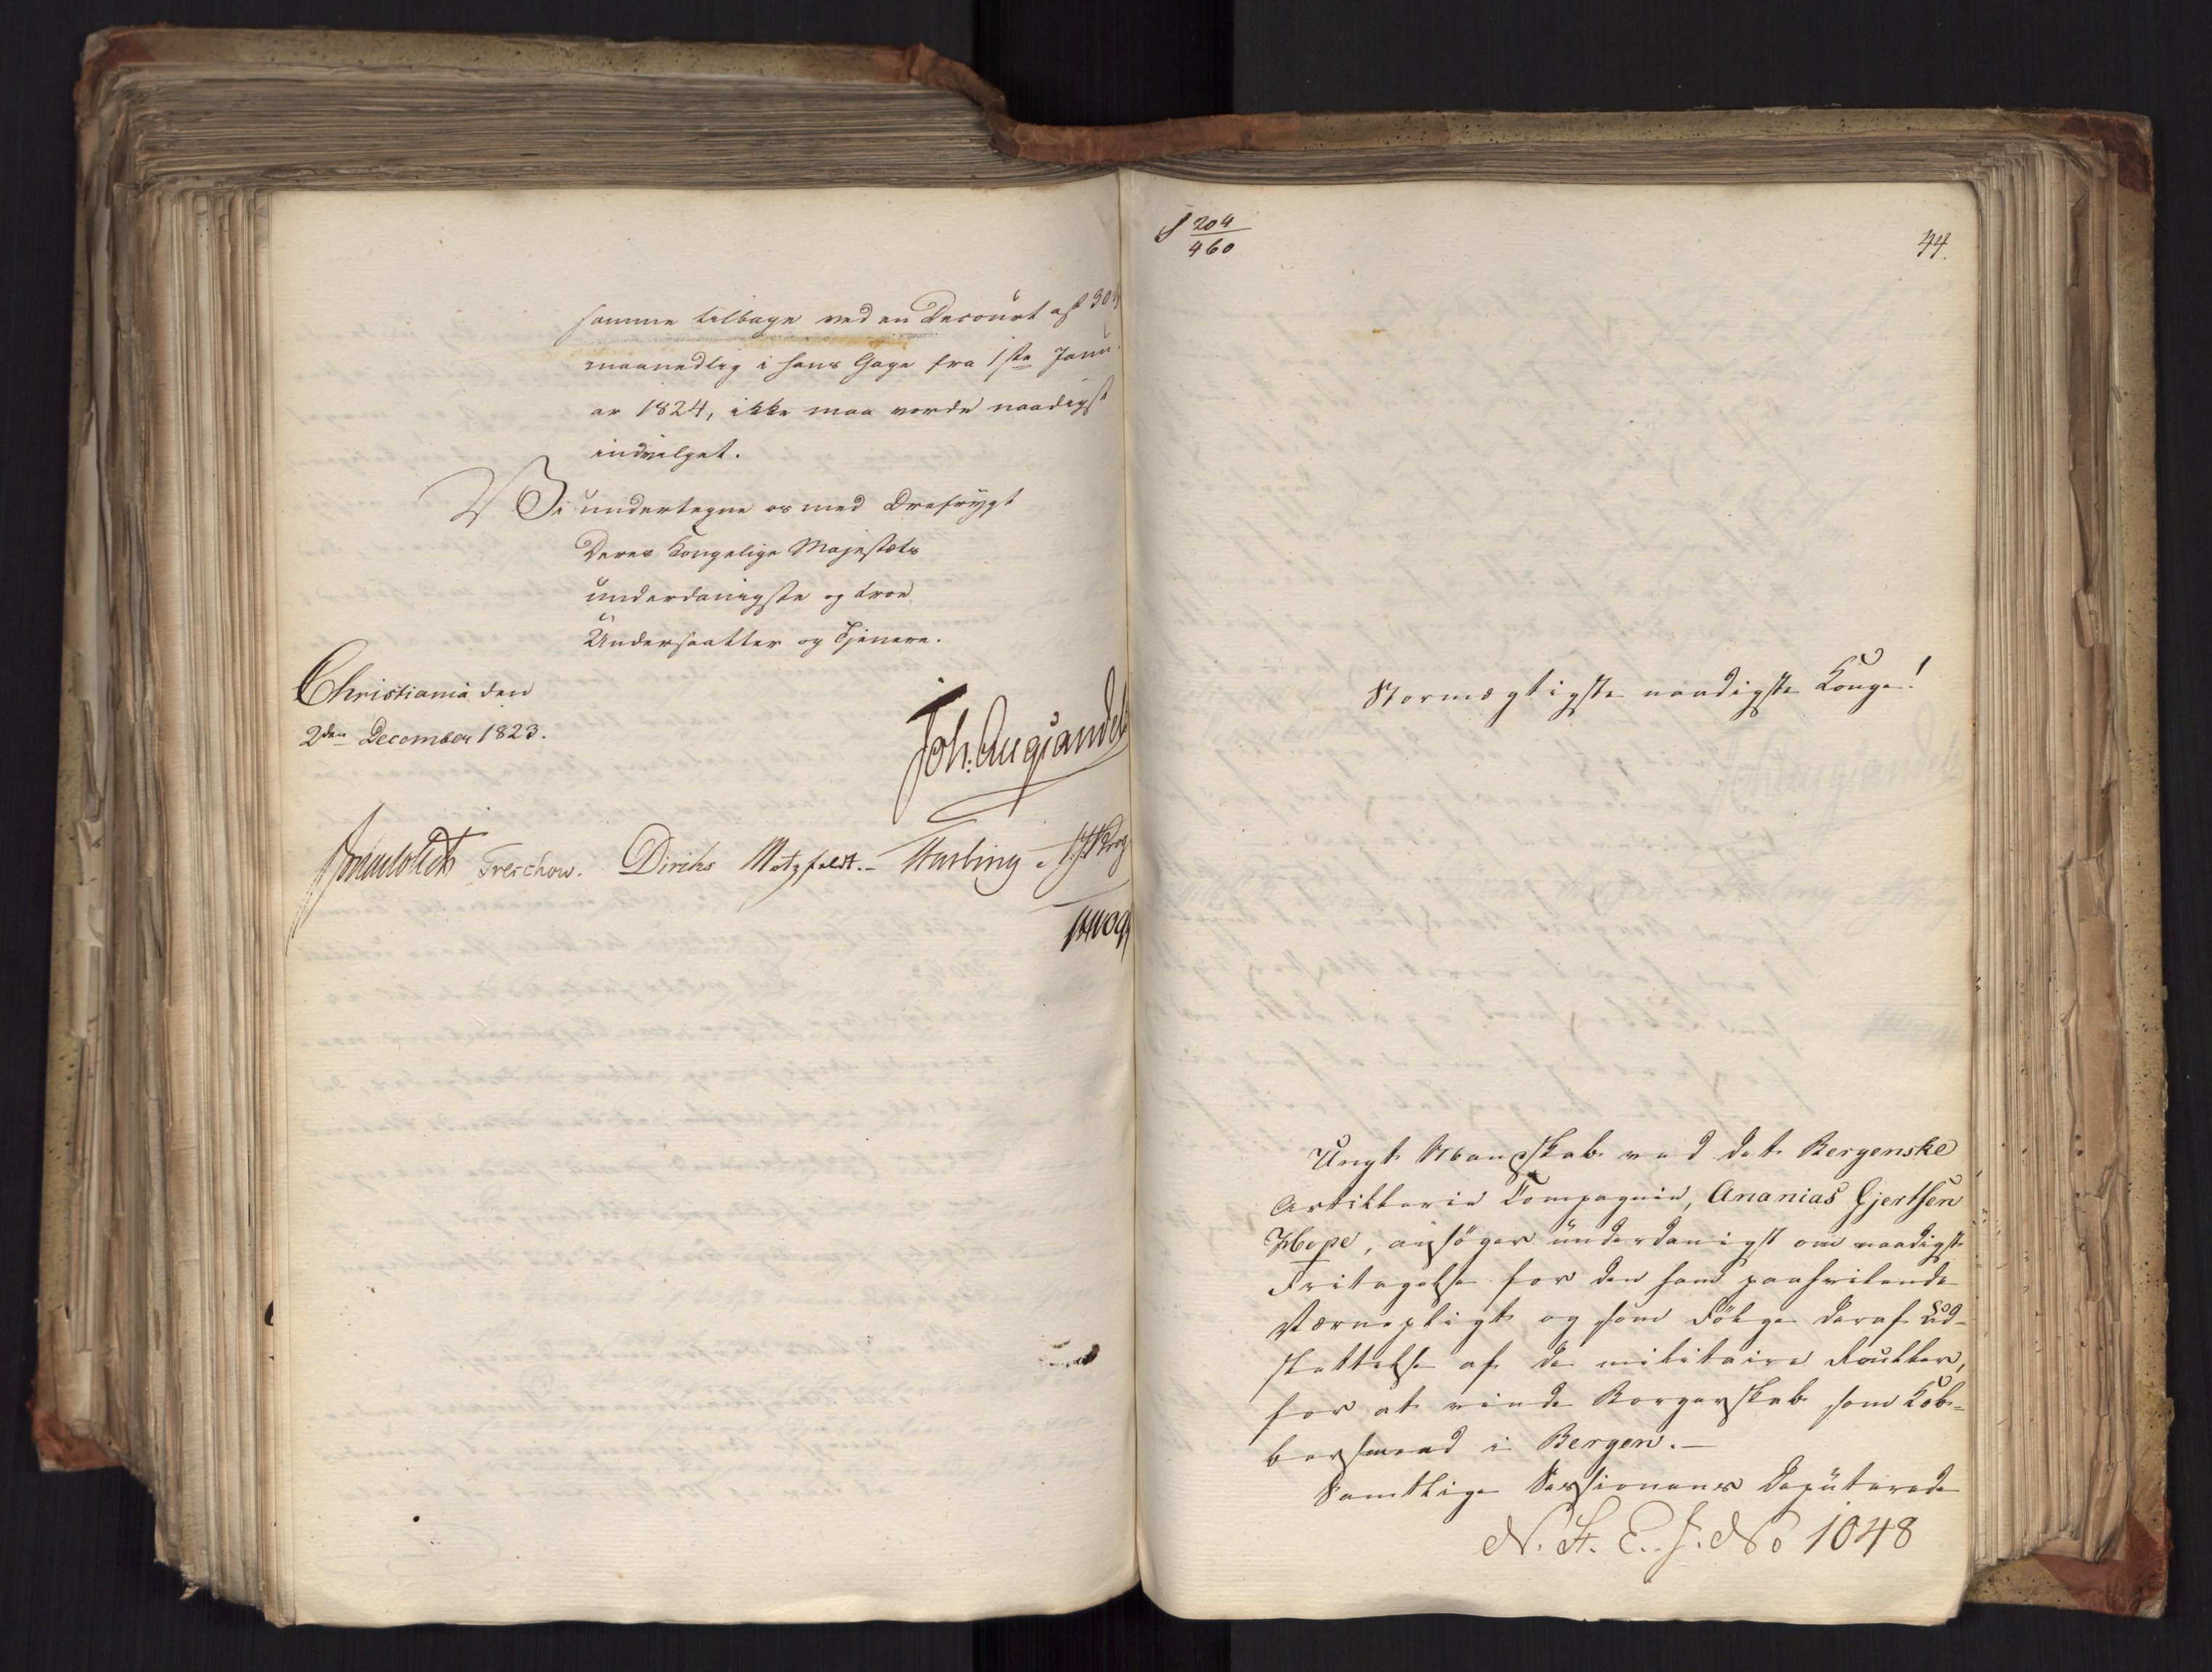 samme tilbage ved en Decourt af 30
maanedlig i hans Gage fra 1ste Janu-
ar 1824, ikke maa vorde naadigst
indvilget.
Vi undertegne os med Ærefrygt
Deres Kongelige Majestæts
underdanigste og troe
Undersaatter og Tjenere.
Christiania den
2den December 1823.
Joh. Aug. Sandels
Treschow. Diriks Motzfeldt.- Fasting
204
460
44.
Stormægtigste naadigste Konge!
Ungt Mandskab ved det Bergenske
Artillerie Compagnie, Ananias Gjertsen
Hope, ansöger underdanigst om naadigst
Fritagelse for den ham paahvilende
Værnepligt og som Fölge deraf Ud-
slettelse af de militaire Rouller,
for at vinde Borgerskab som Kob-
bersmed i Bergen.-
Samtlige Sessionens Deputerede
N. F. E. J. No 1048